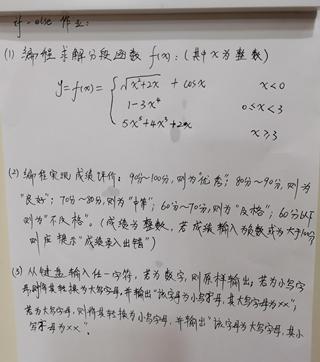 if-else 作业:
(1) 编程求解分段函数 f(x): (其中x为整数)
y=f(x)= { √x²+2x + cosx x<0
1-3x⁴ 0≤x<3
5x⁵+4x³+2x x≥3
(2) 编程实现成绩评价: 90分~100分,则为"优秀"; 80分~90分,则为
"良好"; 70分~80分,则为"中等"; 60分~70分,则为"及格"; 60分以下
则为"不及格"。(成绩为整数,若成绩输入为负数或为大于100分
则应提示"成绩录入出错")
(3) 从键盘输入任一字符,若为数字,则原样输出,若为小写字
母,则将其转换为大写字母,并输出"该字母为小写字母,其大写字母为xx";
若为大写字母,则将其转换为小写字母,并输出"该字母为大写字母,其小
写字母为xx"。